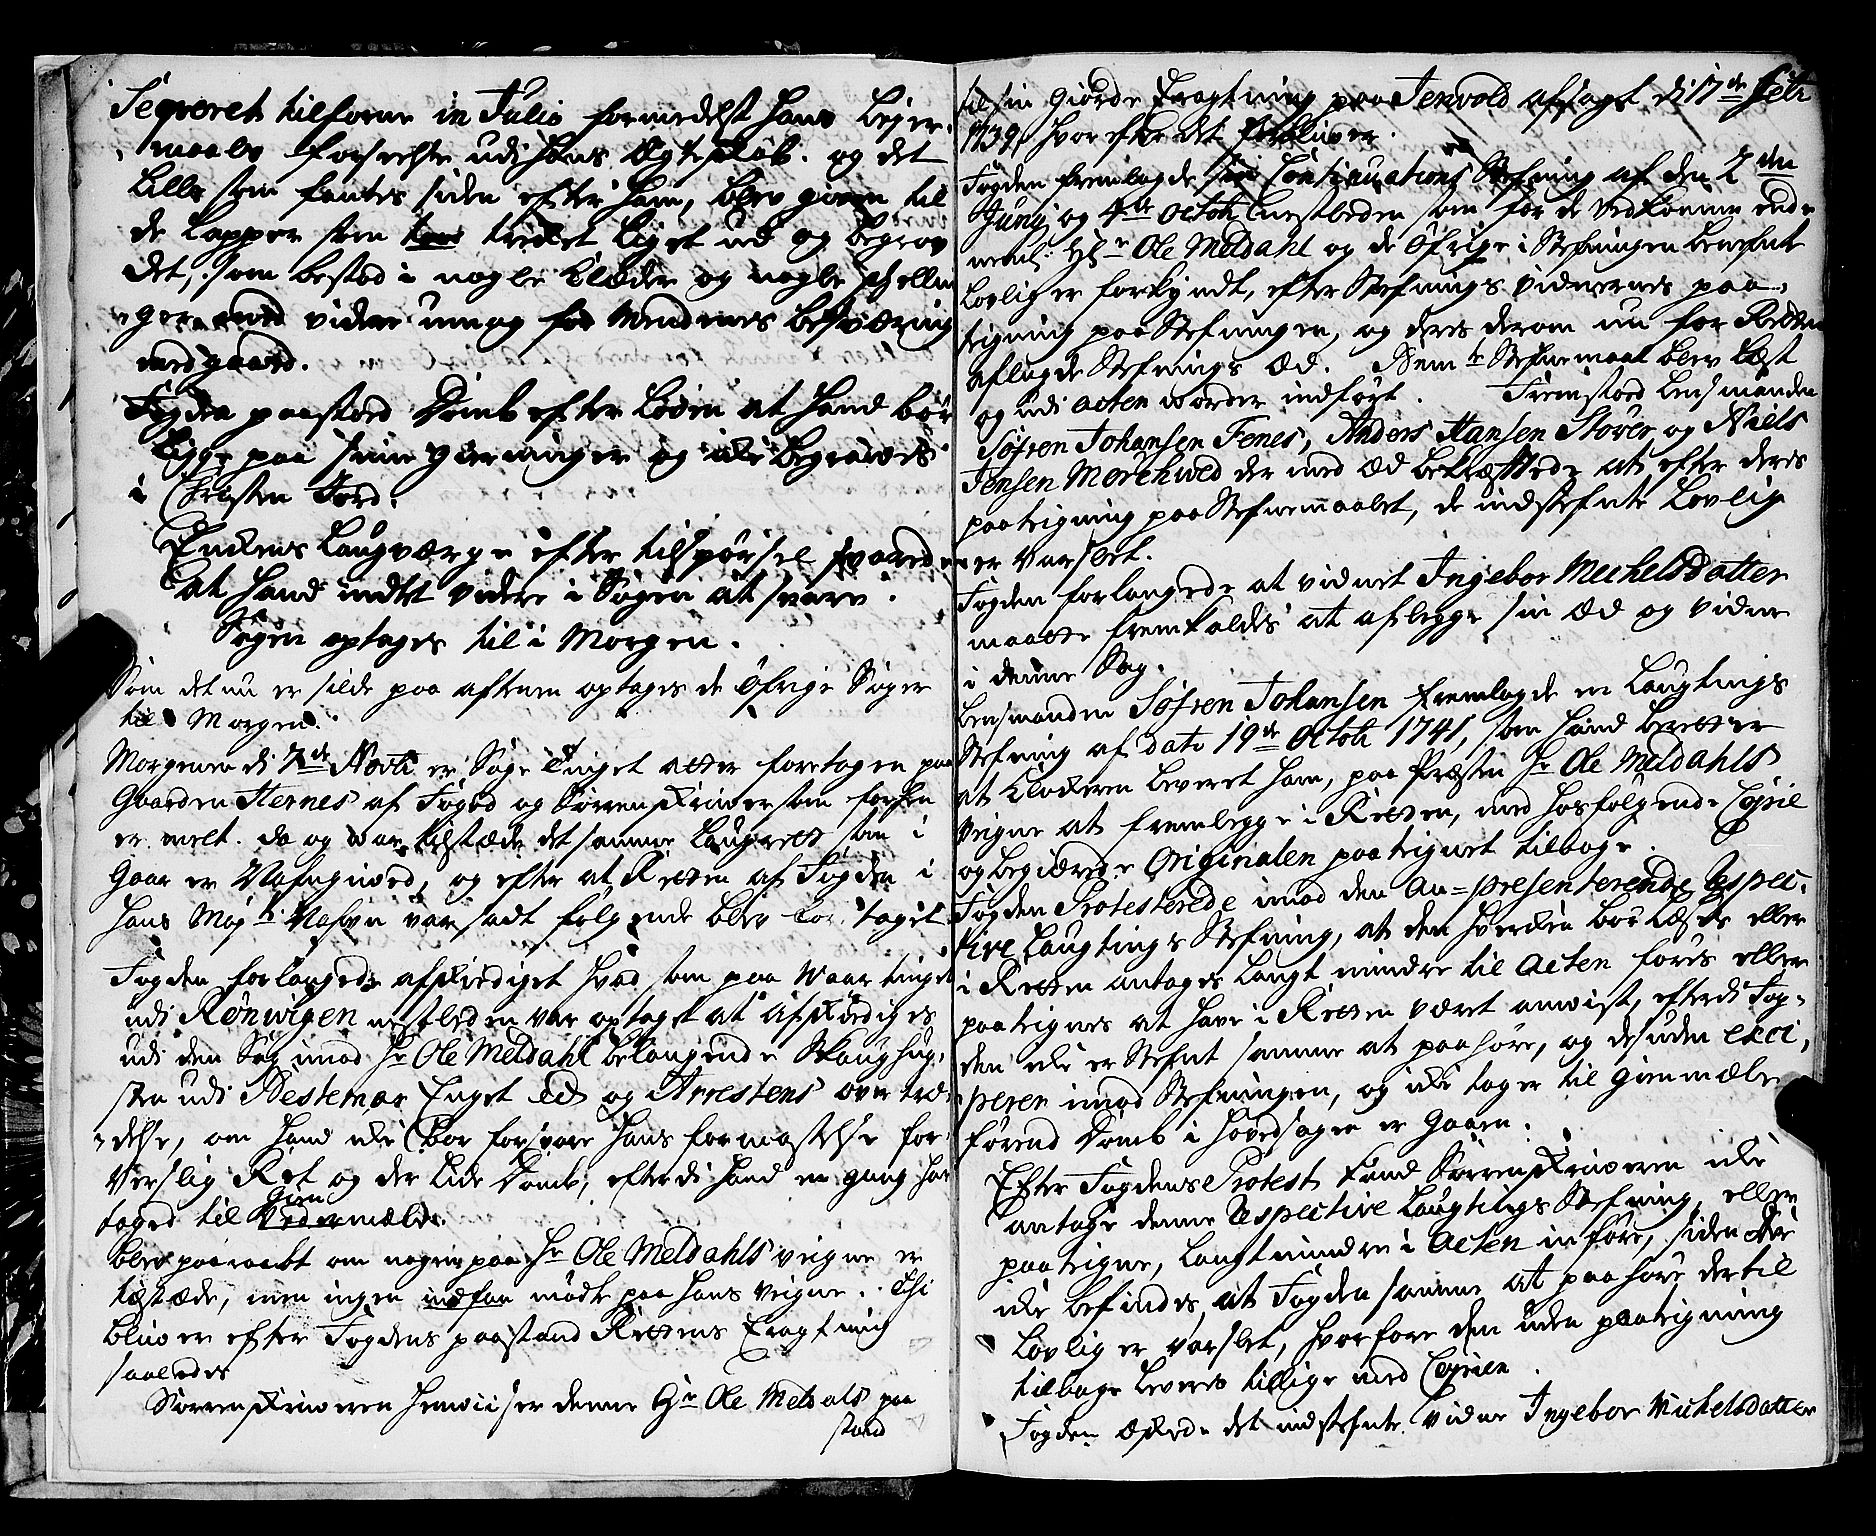 Seqveret tilforne in Julio formedelst hans Leÿer¬
maals forseelse udi hans Ægteskab. og det
lille som fantes siden efter ham, blev given til
de lapper som trecket liget ud og begrov
det, som bestod i nogle klæder og nogle skellin
ger med videre umag for Mendenes besværing
med gaard.
Fogden paastod Domb efter loven at hand bør
ligge paa sine gierninger og icke begraves
i Christen Jord.
Enckens laugværge efter tilspørsel svarede
at hand indtet videre i Sagen at svare.
Sagen optages til i Morgen.
Som det nu er silde paa aftenen optages de Øfrige Sager
til Morgen.
Morgenen di 7de Novbr er Sage Tinget atter foretagen paa
Gaarden Sternes af Foged og Sorrenskriver som forhen
er melt. da og var tilstæde det samme laugrett som i
Gaar er Nafngived, og efter at Retten af Fogden i
Hans Mayts Nafvn var sadt følgende blev foretaget
Fogden forlangede afskediget hvad som paa Waar tinget
udi Rønvigen nestleden var optaget at afskediges
udi den Sag imod Hr Ole Meldahl belangende Skoughug¬
sten udi Restemar Enget Eid og Arrestens overtræ¬
delse, om hand icke bør forsvare hans formastelse for
Verslig Ret og der lide Domb, efterdi hand en gang har
taged til Gien
Vedermælde.
blev paaraabt om nogen paa Hr Ole Meldahls veigne er
tilstæde, men ingen indfan mødte paa hans veigne. Thi
bliver efter Fogdens paastand Rettens Eragtning
saaledes
Sorrenskriveren henviiser denne Hr Ole Meldals paa
stand
til sin giorde Eragtning paa Jenvold afsagt di 17de Febr
1739, hvor efter det forbliver.
Fogden fremlagde sin Continuations Stefning af den 2den
Junij og 4de Octobr nestleden som for de vedkommende
neml: Hr Ole Meldahl og de øfrige i Stefningen benefnte
lovlig er forkyndt, efter Stefnings vidnernes paa¬
tegning paa Stefningen, og deres derom nu for Retten
aflagde Stefnings Æd. Bemte Stefnemaal blev læst
og udi acten vorder indført. Fremstod lensmanden
Søfren Johansen Fenes, Anders Hansen Støver og Niels
Jensen Mørchved der med Æd bekræftede at efter deres
paategning paa Stefnemaalet, de indstefnte lovlig
er varslet.
Fogden forlangede at vidnet Ingebor Mechelsdatter
maatte fremkaldes at aflegge sin Æd og vidne
i denne Sag.
Lensmanden Søfren Johansen fremlagde en laugtings
Stefning af dato 19de Octobr 1741, som hand beretter
at klockeren leveret ham, paa Præsten Hr Ole Meldahls
veigne at fremlegge i Retten, med hosfølgende Copie
og begiærede Originalen paategnet tilbage.
Fogden Protesterede imod den An=presenterende respec¬
tive laugtings Stefning, at den hverken bør læsis eller
i Retten antages langt mindre til Acten føres eller
paategnes at have i Retten været anvist, efterdi Fog¬
den icke er Stefnt samme at paahøre, og desuden exci¬
perer imod Stefningen, og icke tager til gienmæle
førend Domb i hovedsagen er gaaen.
Efter Fogdens Protest fand Sorrenskriveren icke
antage denne respective laugtings Stefning, eller
paategne, langt mindre i Acten indføre, siden der
icke befindes, at Fogden samme at paahøre dertil
lovlig er varslet, hvorfore den uden paategning
tilbage leveres tillige med Copien.
Fogden æskede det indstefnte vidne Ingebor Michelsdatter